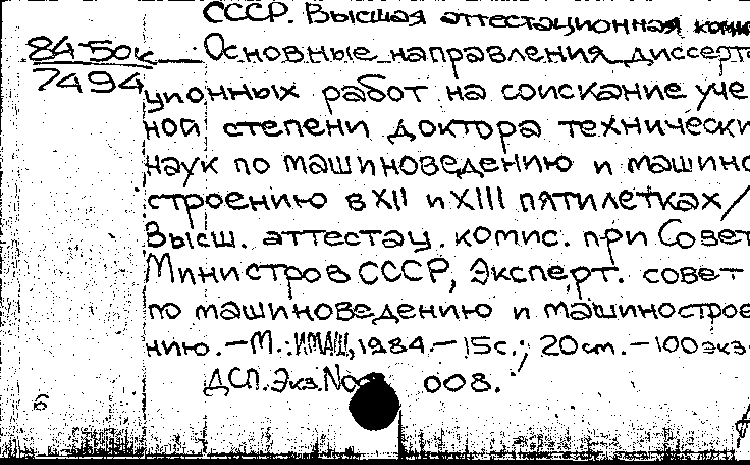 СССР. Высшая аттестационная коми
84-50к Основные направления диссерта
7494 ционных работ на соискание уче
ной степени доктора технически
наук по машиноведению и машино
строению в XII и XIII пятилетках/
Высш. аттестац. комис. при Совет
Министров СССР, Эксперт. совет
по машиноведению и машинострое
нию.—М.: ИМАШ, 1984.— 15с.; 20см.—100экз
ДСП. Экз.№ 008.
6